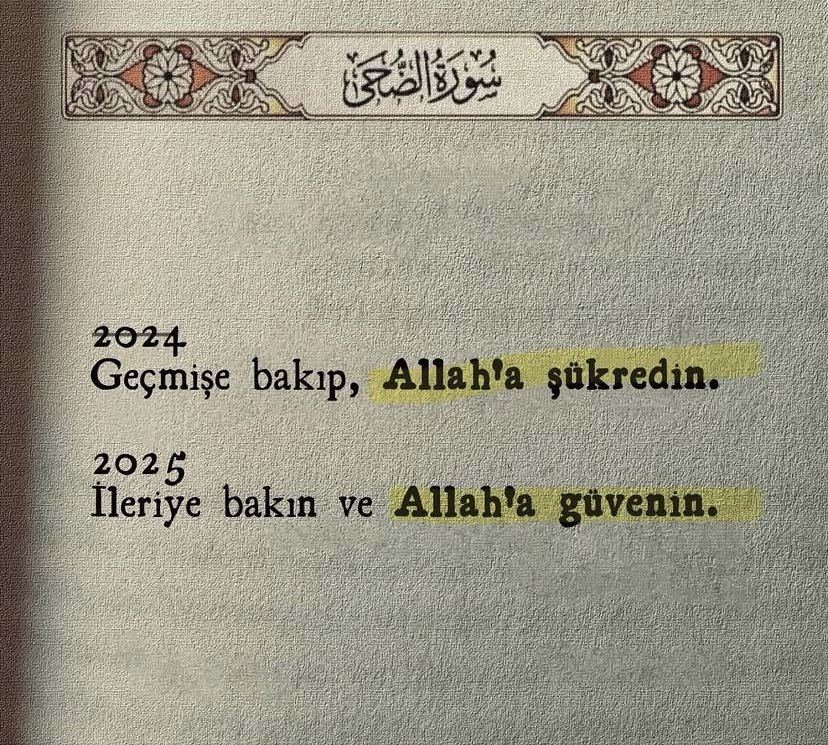 سُورَةُ الضُّحَىٰ
2024
Geçmişe bakıp, Allah'a şükredin.
2025
İleriye bakın ve Allah'a güvenin.